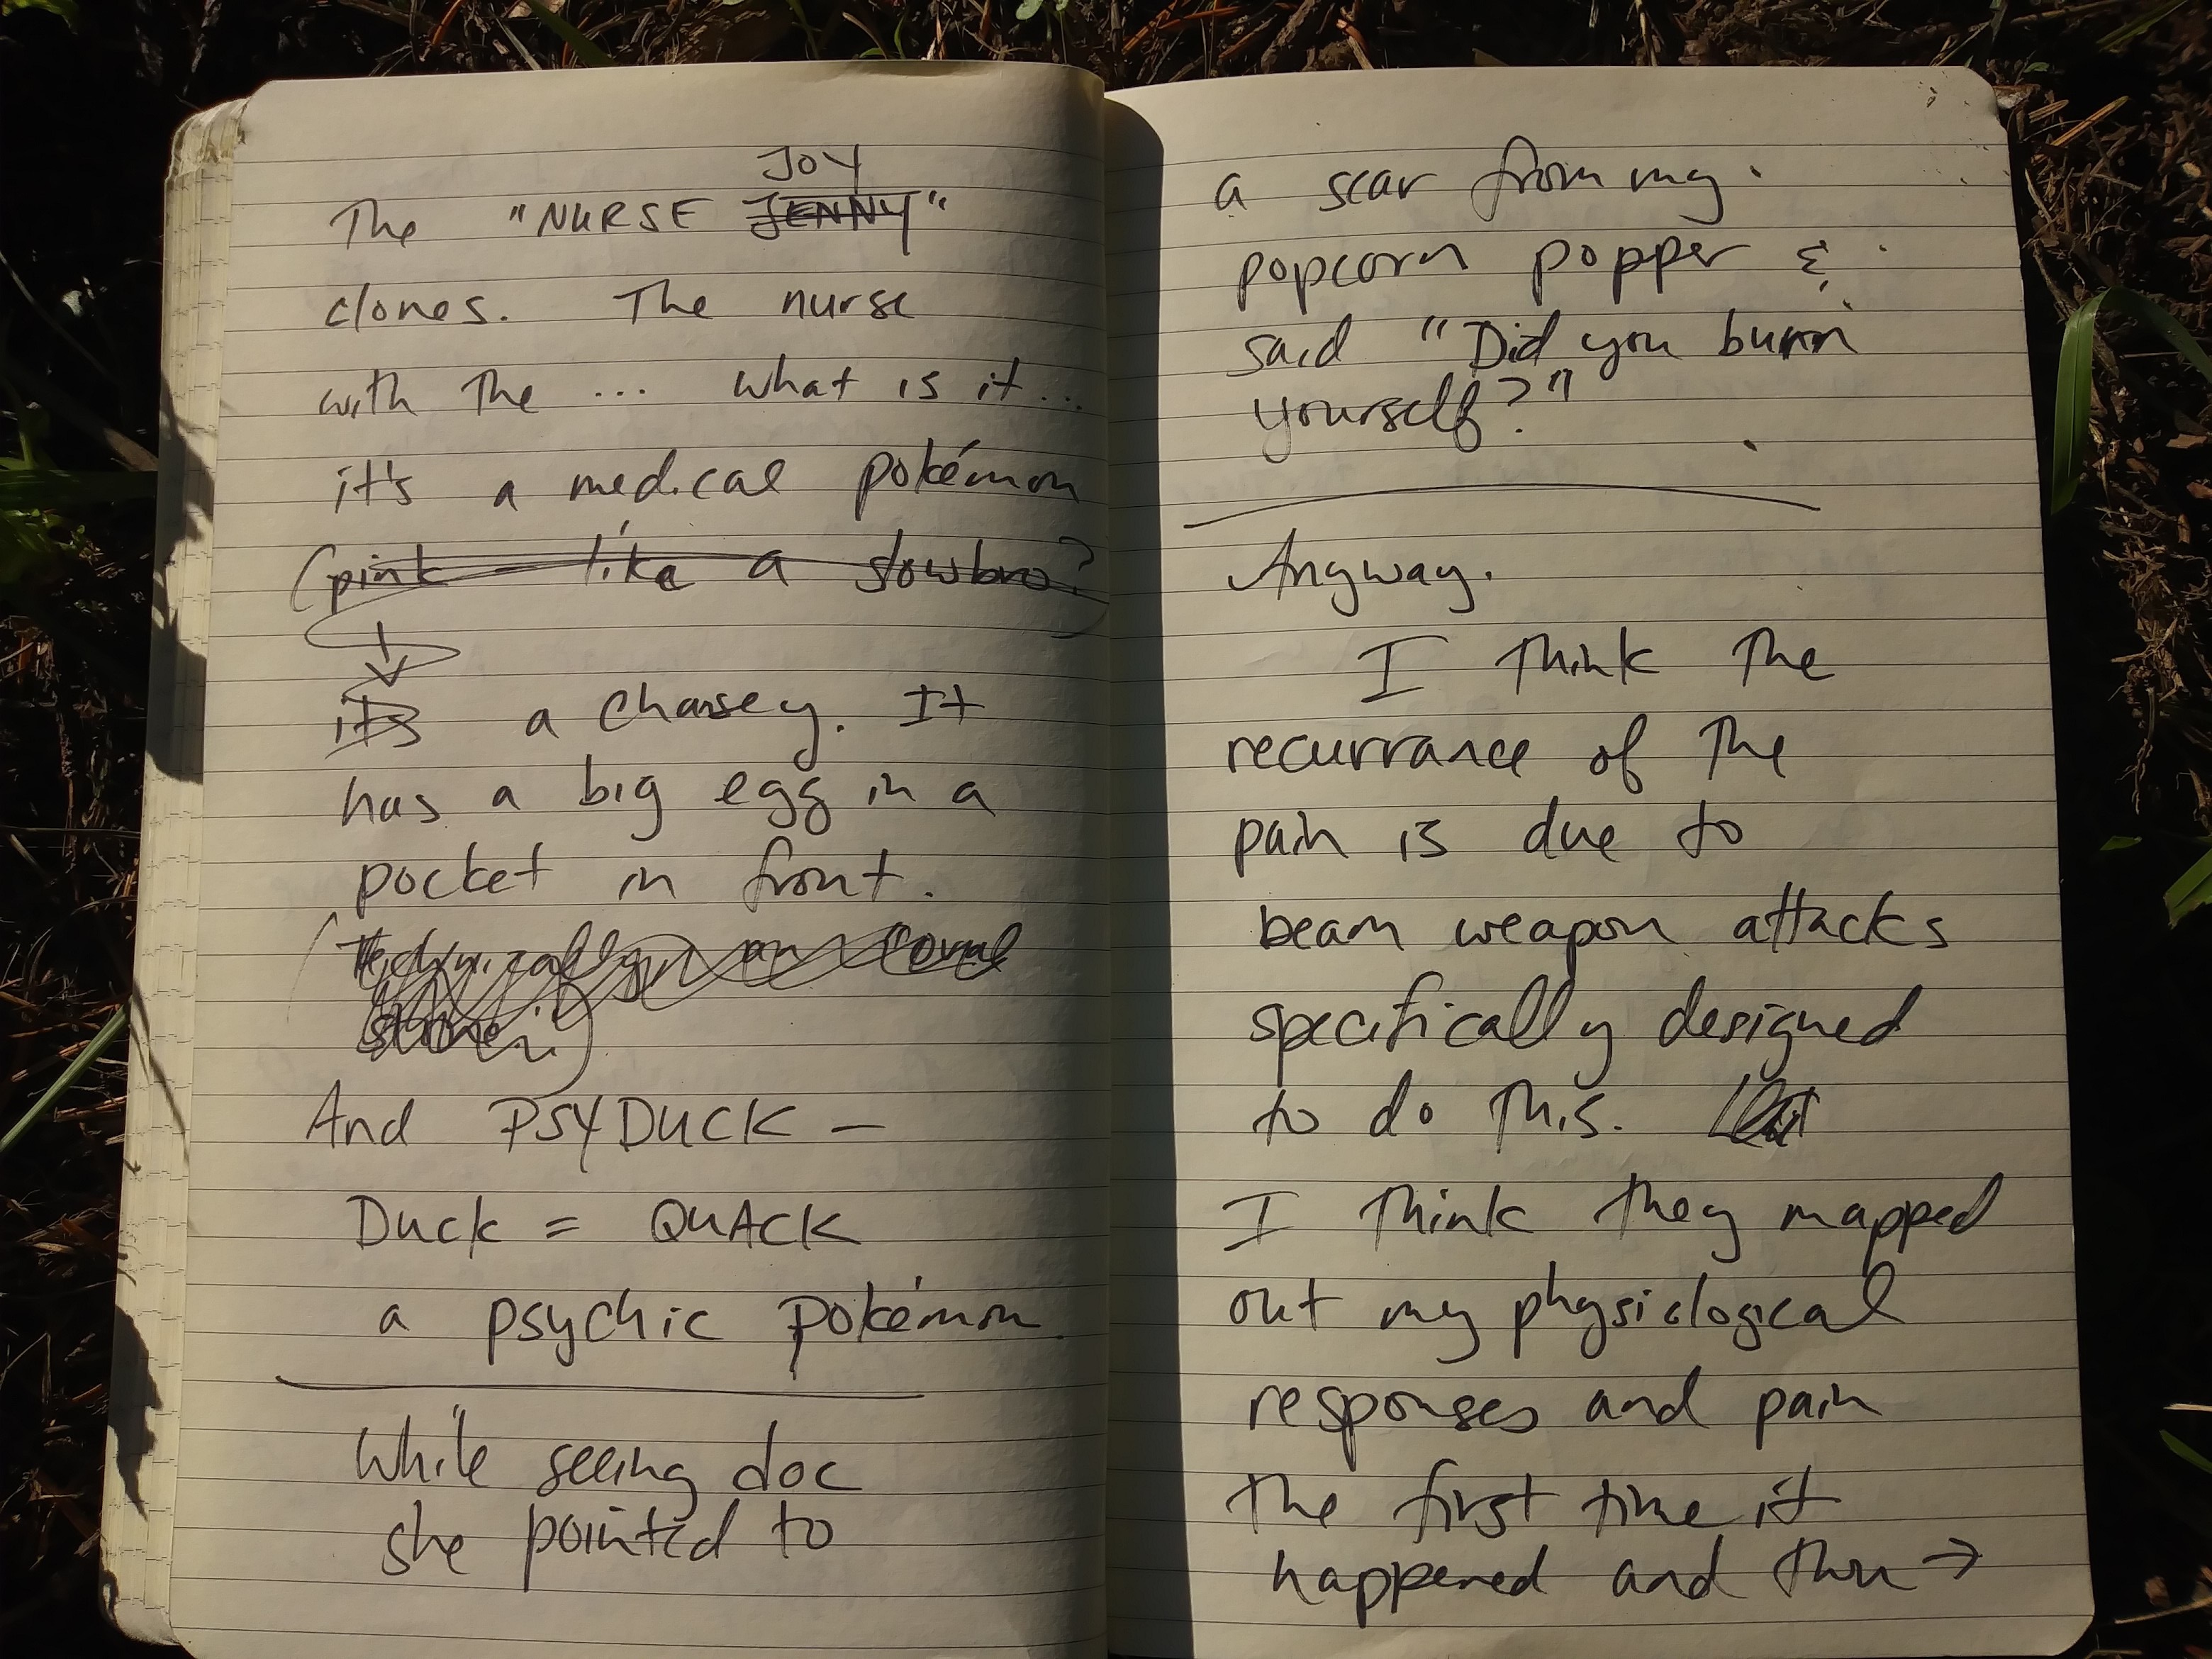 JOY
The "NURSE JENNY"
clones. The nurse
with the ... what is it...
it's a medical pokémon
(pink - like a slowbro?
it's a Chansey. It
has a big egg in a
pocket in front.
Technically an
And PSYDUCK —
Duck = QUACK
a psychic pokémon.
While seeing doc
she pointed to
a scar from my
popcorn popper &
said "Did you burn
yourself?"
Anyway.
I think the
recurrance of the
pain is due to
beam weapon attacks
specifically designed
to do this.
I think they mapped
out my physiological
responses and pain
the first time it
happened and then →